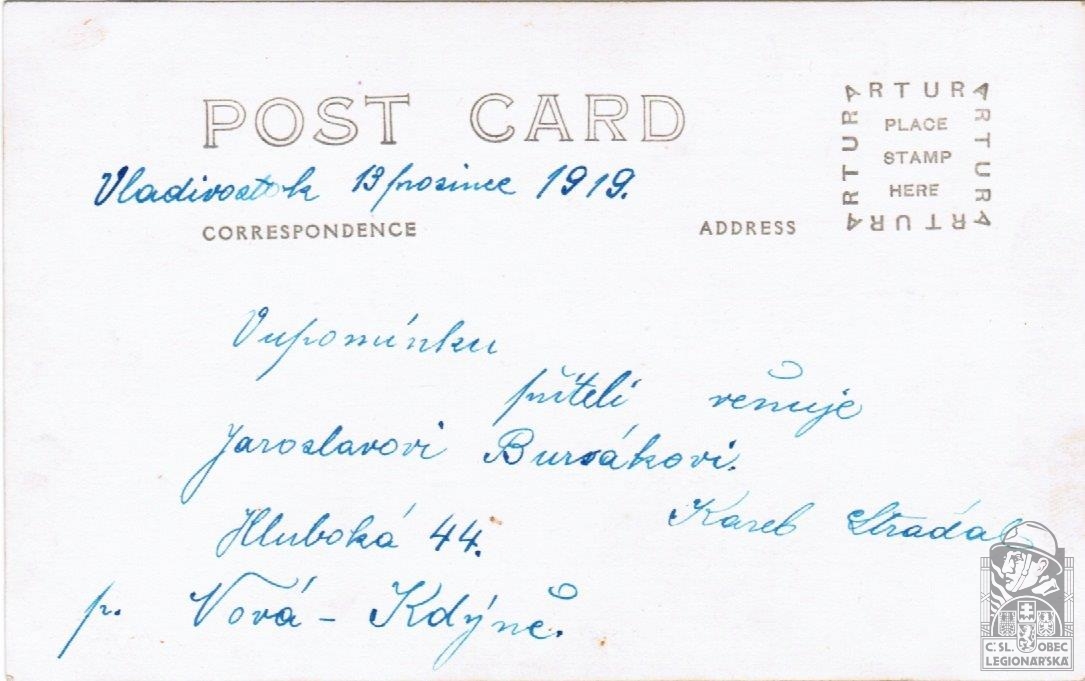 POST CARD
Vladivostok 13 prosince 1919.
CORRESPONDENCE
ADDRESS
ARTURA
ARTURA
ARTURA
ARTURA
PLACE
STAMP
HERE
Vupomínku
příteli věnuje
Jaroslavovi Bursákovi.
Hluboká 44.
Karel Stradal
p. Nová - Kdýně.
Č.SL. OBEC
LEGIONÁŘSKÁ